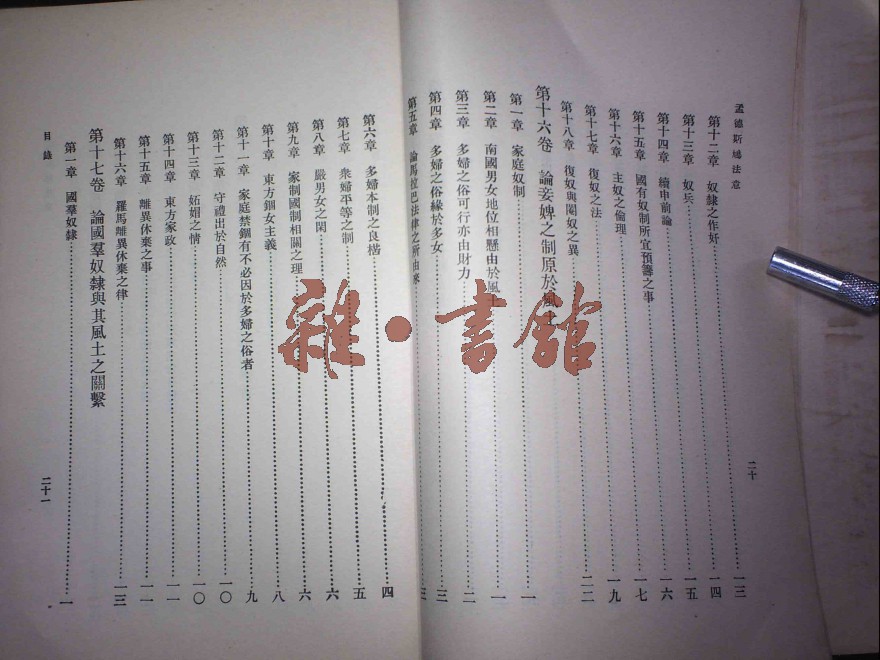 孟德斯鳩法意
第十二章 奴隸之作奸 一三
第十三章 奴兵 一四
第十四章 續申前論 一五
第十五章 國有奴制所宜預籌之事 一六
第十六章 主奴之倫理 一七
第十七章 復奴之法 一九
第十八章 復奴與閹奴之異 二二
第十六卷 論妾婢之制原於風土
第一章 家庭奴制 一
第二章 南國男女地位相懸由於風土 一
第三章 多婦之俗可行亦由財力 二
第四章 多婦之俗緣於多女 三
第五章 論馬拉巴法律之所由來 三
二十
第六章 多婦本制之良楛 四
第七章 衆婦平等之制 五
第八章 嚴男女之閑 六
第九章 家制國制相關之理 六
第十章 東方錮女主義 八
第十一章 家庭禁錮有不必因於多婦之俗者 九
第十二章 守禮出於自然 一〇
第十三章 妬媢之情 一〇
第十四章 東方家政 一一
第十五章 離異休棄之事 一一
第十六章 羅馬離異休棄之律 一三
第十七卷 論國羣奴隸與其風土之關繫
第一章 國羣奴隸 一
目錄
二十一
雜·書館